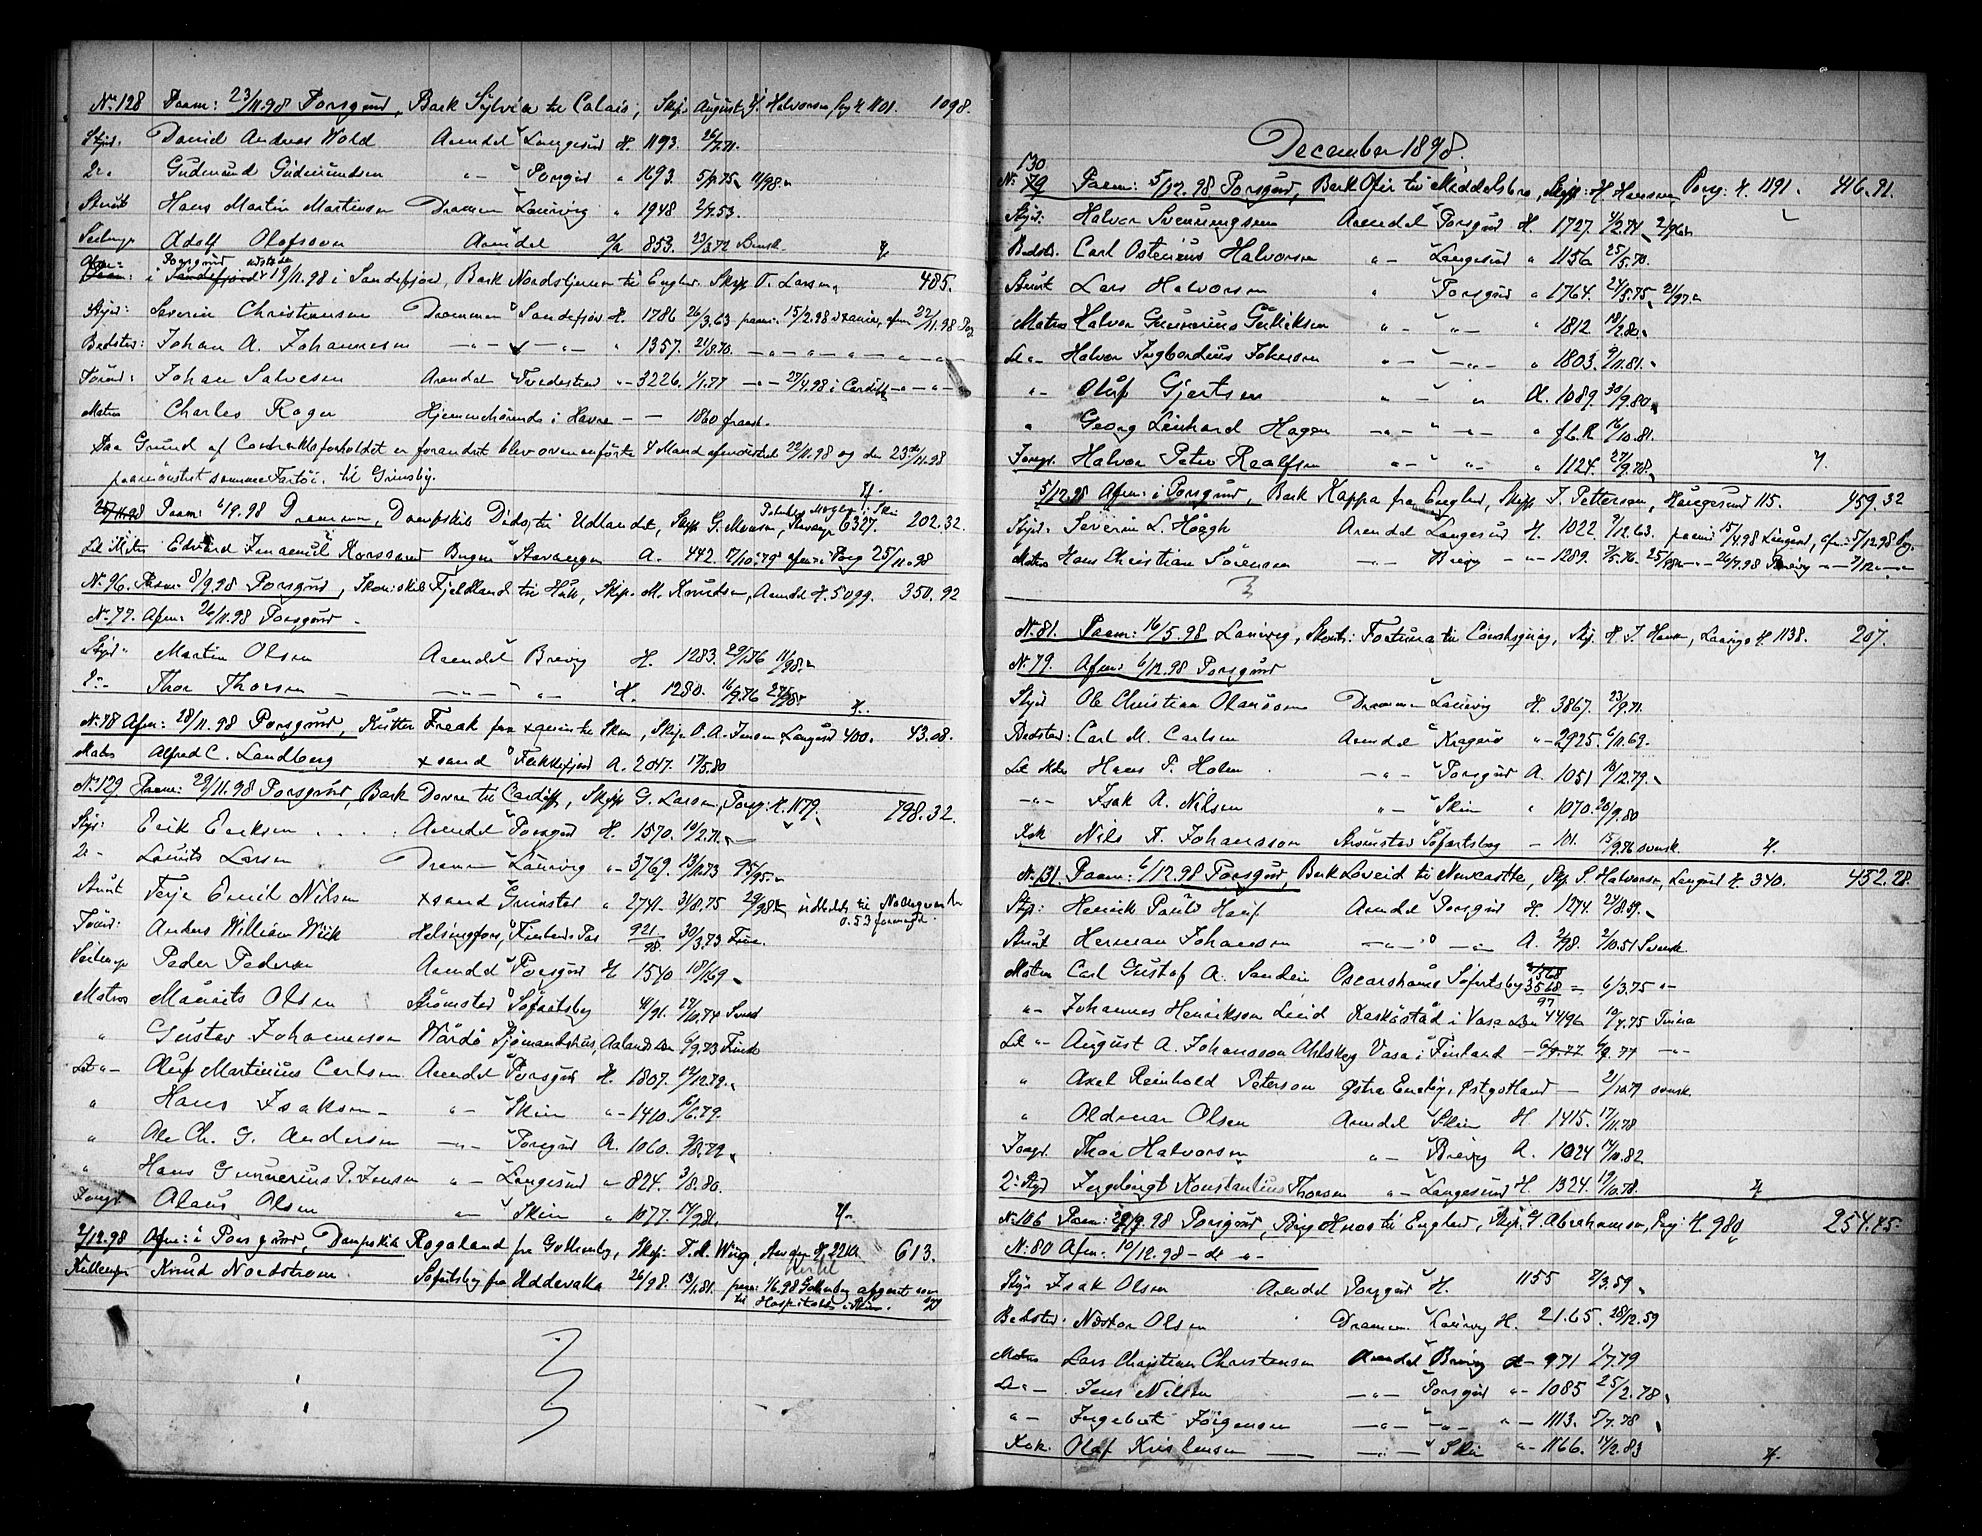 No 128 Paam: 23/11.98 Porsgrund, Bark Sylvia til Calais, Skip. August J. Halvorsen Prg H. 1101. 1098.
Styrd: David Andreas Wold Arendal Langesund H. 1193. 26/7.71.
2den Gudmund Gudmundsen -"- " Porsgrd " 1693. 5/9.75 11/98.
Stuert Hans Martin Martinsen Drammen Laurvig " 1948 2/7.53.
Seilmgr Adolf Olofsson Arendal 853. 23/3.72 Svensk.
Afm: i Porsgrund 19/11.98 i Sandefjord, Bark Nordstjernen til England. Skip. O. Larsen 485.
Styrd: Severin Christiansen Drammen Sandefjord H. 1786 26/3.63 paam: 15/2.98 afm 22/11.98 Prg
Bedstm: Johan A. Johannesen -"- -"- " 1357. 21/8.70. -"-"-"-"-
Tømd: Johan Salvesen Arendal Tvedestrand "- 3226. 1/1.77 -"- 27/4.98 i Cardiff -"-"-
Matros Charles Roger Hjemmehørende i Havre - - 1860 fransk.
Paa Grund af Contraktsforholdet er forandret blev ovenanførte 4 Mand afmønstret 22/11.98 og den 23de/11.98
paamønstret samme Fartøi til Grimsby.
25/11.98 Paam: 6/9.98 Drammen, Dampskib Dido, til Udlandet, Skip G. Morsen, Stavanger 6327. 202.32.
Let Matros Edvard Imanuel Korsgaard Bergen Stavanger A. 442. 7/10.79 afm: Prg 25/11.98
No. 96. Paam: 8/9.98 Porsgrund, Skonskib Fjeldland til Hull, Skip. M. Knudsen, Arendal H. 5099. 350.92
No. 77. Afm: 26/11.98 Porsgrund
Styrd " Martin Olsen Arendal Brevig H. 1283. 29/1.56 11/98.
2den Thor Thorsen -"-"- "- H. 1280. 16/9.76
No. 78 Afm: 28/11.98 Porsgrund, Kutter Freak fra Skien, Skip. O. A. Jensen Langsd 400. 43.08.
Matros Alfred C. Landberg xsand Flekkefjord A. 2047. 17/5.80
No. 129 Paam: 29/11.98 Porsgrund, Bark Dovre til Cardiff, Skip G. Larsen, Porsg: H. 1179. 798.32.
Styr: Erik Eriksen Arendal Porsgrd H. 1570. 19/2.71.
2- Lauritz Larsen Drammen Laurvig "- 3769. 13/10.73 95.
Stuert Terje Emil Nilsen xsand Grimstad " 2741. 31/8.75 29/98
Tømd: Anders William Wiik Helsingfors, Finlands Pas 921/98. 30/3.73 Finn.
Seilmgr Peder Pedersen Arendal Porsgrd H 1540 18/1.69
Matros Mauritz Olsen Strømstad Søfartsbog 4/91. 17/11.74 Svensk
" Gustav Johannesson Wårdö Sjömandshus, Aaland 6/9.73 Finsk
Let "- Oluf Martinius Carlsen Arendal Porsgrd H. 1807. 19/12.79.
" Hans Isaksen - "- Skien "- 1410. 6/6.79.
" Ole Ch. G. Andersen -"- Porsgrd A. 1060. 9/8.79.
" Hans Gunnerius P. Jensen " - Langesund "- 824. 3/8.80.
Jungd Olaus Olsen -"- Skien " 1077. 14/9.81.
2/12.98 Afm: i Porsgrund, Dampskib Rogaland fra Gothenbg, Skip: D. M. Wing, Stavanger H. 22 613.
Kullemper Knud Nordstrøm Søfartsbog fra Uddevalla 26/98. 13/1.81. paam: 1/6.98 Gothenbg afgaat som syg
til Hospitalet i Skien.
December 1898.
130
No. 79 Paam: 5/12.98 Porsgrund, Bark Ofir til Middelsbro, Skip: H. Hansen Porsg: H. 1191. 416.91.
Styrd: Halvor Svenningsen Arendal Porsgrund H. 1727. 1/2.74 2/96
Bedstm. Carl Ostenius Halvorsen "- Langesund " 1156 25/5.70.
Stuert Lars Halvorsen " Porsgrd " 1764. 24/5.75 21/97
Matros Halvor Gunnerius Gulliksen "- "- " 1812 18/2.80
Let "- Halvor Ingbordius Johnsen "- -"- " 1803. 9/11.81.
"- Oluf Gjertsen "- " A. 1089. 30/9.80
" Georg Linhard Hagen -"- -"- " 16/10.81.
Jungd. Halvor Peter Realfsen "- "- " 1124. 27/9.78.
5/12.98 Afm: i Porsgrund, Bark Kappa fra England, Skip J. Petterson, Haugesund 115. 459.32
Styrd: Severin L. Høegh Arendal Langesund H. 1022 9/12.63. paam: 15/4.98 Langesd, afm: 5/12.98 Prg.
Matros Hans Christian Sørensen -"- Brevig -"- 1289. 7/5.76.
No. 81. Paam: 16/5.98 Laurvig, Skonb: Fortuna til Skip H. J. Hansen, Laurvig H 1138. 207.
No. 79. Afm: 6/12.98 Porsgrund
Styrd Ole Christian Olausson Drammen Laurvig H. 3867. 23/9.71.
Bedstm: Carl M. Carlsen Arendal Kragerø "- 2925. 6/11.69.
Let Mat Hans P. Holm -"- Porsgrd A. 1051 18/12.79.
-"- Isak A. Nilsen "- Skien " 1070. 20/9.80
Kok Nils F. Johansson Strømstad Søfartsbog - 101. 15/9.76 svensk
No. 131. Paam: 6/12.98 Porsgrund, Bark Løveid til Newcastle, Skip. S. Halvorsen, Langsd H. 340. 452.28.
Styr: Henrik Pauls Hauf Arendal Porsgrd H. 1274. 27/8.59.
Stuert Herman Johansson -"- -"- A. 2/98. 2/10.51 Svensk
Matros Carl Gustaf A. Sandin Oscarshamn Søfartsbg 3568/97 - 6/3.75 "-
"- Johannes Henrikson Lind Kaskøstad i Vasa Län 44/96 10/4.75 Finna
Let "- August A. Johansson Ahlskog Vasa i Finland - 6/9.77 -"-
" Axel Reinhold Peterson Østra Eneby, Østgotland - 21/10.79 svensk
" Oldmar Olsen Arendal Skien H. 1415. 17/11.78
Jungd. Thor Halvorsen "- Brevig A. 1024 14/11.82
2. Styrd Ingebrigt Konstantius Thorsen "- Langesund H. 1324. 19/10.78.
No. 106 Paam: 28/9.98 Porsgrund, Brig Hnos til England, Skip. J. Abrahamsen, Prg: H. 980 254.45.
No. 80 Afm: 10/12.98 - de "-
Styr Isak Olsen Arendal Porsgrd H. 1155 9/3.59
Bedstm: Nestor Olsen Drammen Laurvig H. 2165. 28/12.59
Matros Lars Christian Christensen Arendal Brevig A - 971 1/7.79
Let - Jens Nilsen -"- Porsgrd "- 1085 25/2.78
"- Ingebret Jørgensen -"- -"- "- 1113. 5/7.78
Kok. Olaf Kristensen -"- Skien "- 1166. 14/2.83